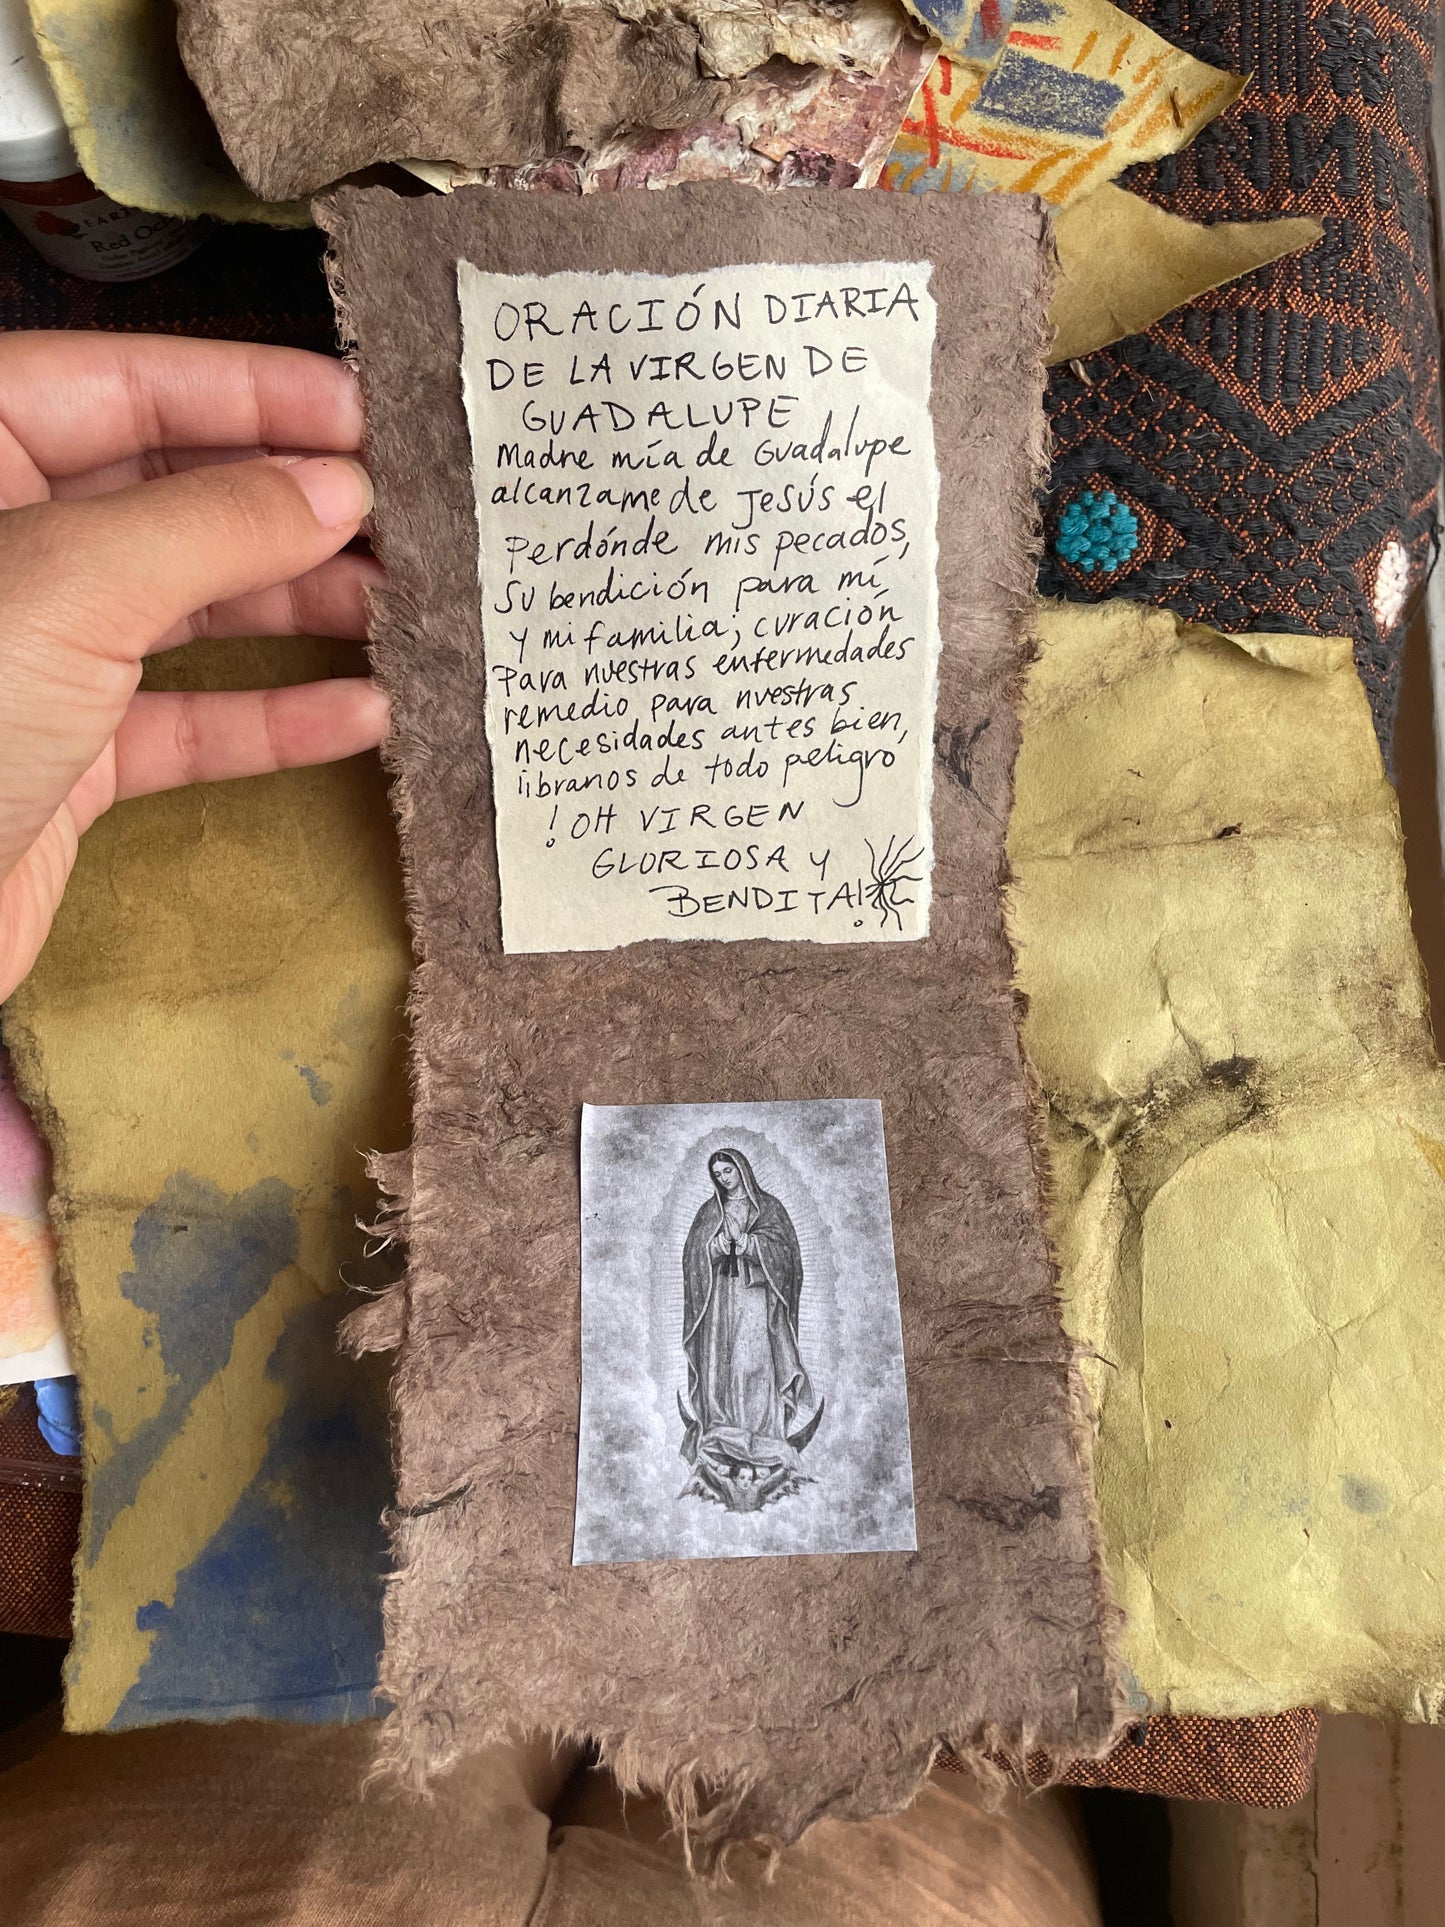 ORACIÓN DIARIA
DE LA VIRGEN DE
GUADALUPE
Madre mía de Guadalupe
alcanzame de Jesús el
Perdónde mis pecados,
Su bendición para mí
y mi familia; curación
Para nuestras enfermedades
remedio para nuestras
necesidades antes bien,
libranos de todo peligro
! OH VIRGEN
GLORIOSA Y
BENDITA!
EART
Red Oc